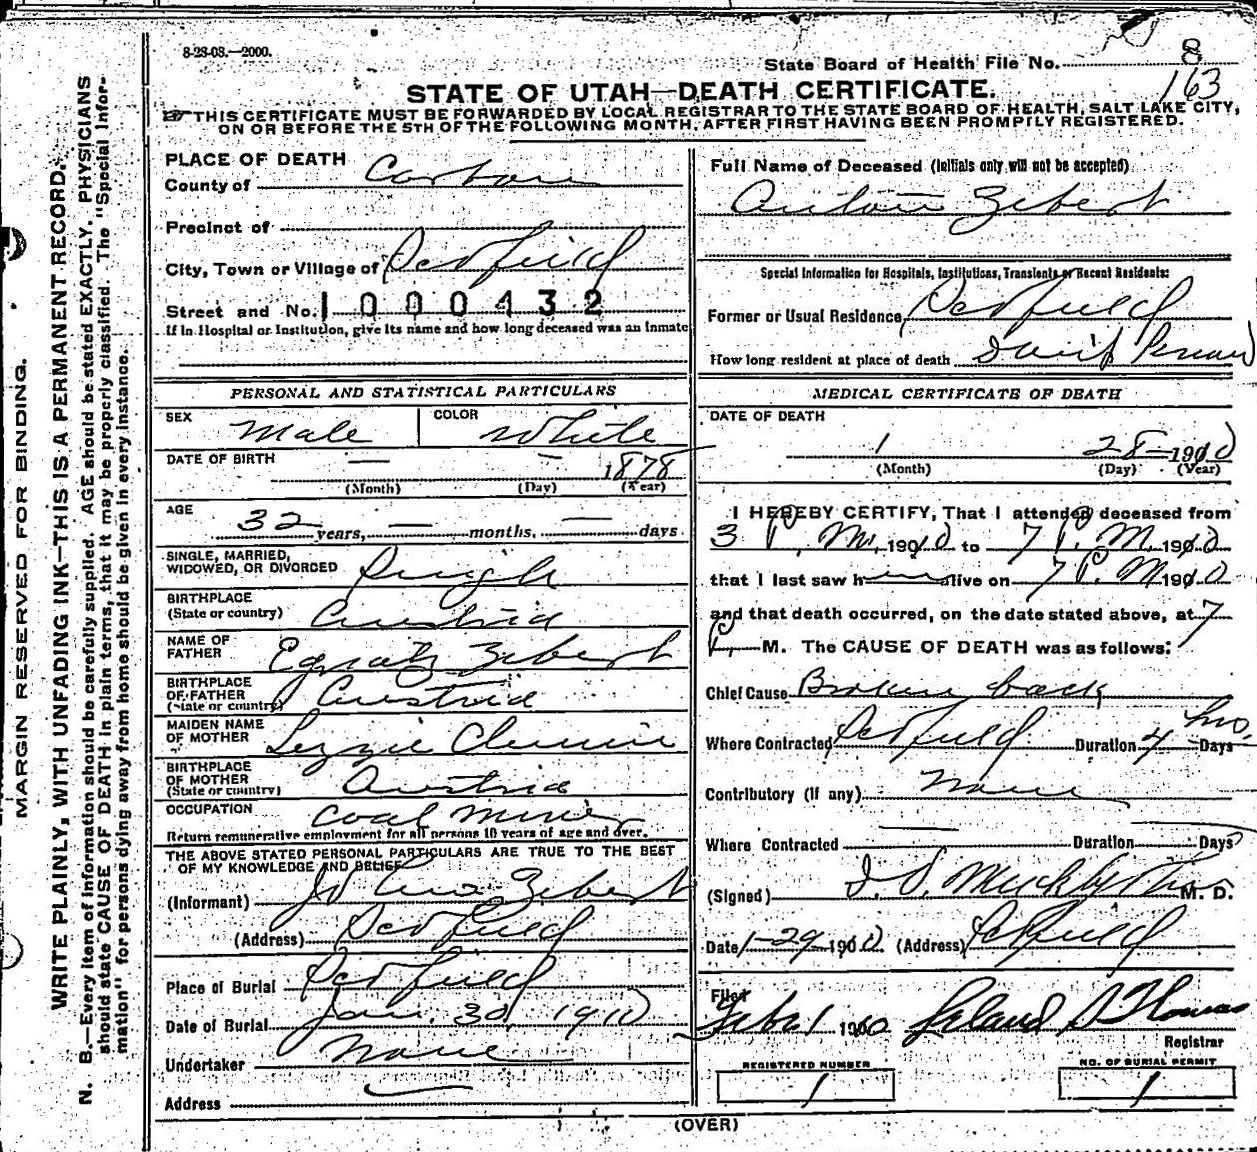 8-28-08.—2000.
State Board of Health File No. 8
163
STATE OF UTAH—DEATH CERTIFICATE.
THIS CERTIFICATE MUST BE FORWARDED BY LOCAL REGISTRAR TO THE STATE BOARD OF HEALTH, SALT LAKE CITY,
ON OR BEFORE THE 5TH OF THE FOLLOWING MONTH, AFTER FIRST HAVING BEEN PROMPTLY REGISTERED.
MARGIN RESERVED FOR BINDING.
WRITE PLAINLY, WITH UNFADING INK—THIS IS A PERMANENT RECORD.
N. B.—Every item of information should be carefully supplied. AGE should be stated EXACTLY. PHYSICIANS
should state CAUSE OF DEATH in plain terms, that it may be properly classified. The "Special Infor-
mation" for persons dying away from home should be given in every instance.
PLACE OF DEATH
County of Carbon
Precinct of
City, Town or Village of Scofield
Street and No. 1000432
If in Hospital or Institution, give its name and how long deceased was an inmate
PERSONAL AND STATISTICAL PARTICULARS
SEX Male COLOR White
DATE OF BIRTH — — 1878
(Month) (Day) (Year)
AGE
32 years, — months, — days
SINGLE, MARRIED,
WIDOWED, OR DIVORCED Single
BIRTHPLACE
(State or country) Austria
NAME OF
FATHER Zebert
BIRTHPLACE
OF FATHER
(State or country) Austria
MAIDEN NAME
OF MOTHER Lizzie
BIRTHPLACE
OF MOTHER
(State or country) Austria
OCCUPATION Coal Miner
Return remunerative employment for all persons 10 years of age and over.
THE ABOVE STATED PERSONAL PARTICULARS ARE TRUE TO THE BEST
OF MY KNOWLEDGE AND BELIEF
(Informant) Zebert
(Address) Scofield
Place of Burial Scofield
Date of Burial Jan. 30, 1910
Undertaker None
Address —
Full Name of Deceased (Initials only will not be accepted)
Anton Zebert
Special Information for Hospitals, Institutions, Transients or Recent Residents:
Former or Usual Residence Scofield
How long resident at place of death
MEDICAL CERTIFICATE OF DEATH
DATE OF DEATH
1 28 1910
(Month) (Day) (Year)
I HEREBY CERTIFY, That I attended deceased from
3 P. M., 1910 to 7 P. M. 1910
that I last saw h alive on 7 P. M 1910
and that death occurred, on the date stated above, at 7
P. M. The CAUSE OF DEATH was as follows:
Chief Cause Broken back
Where Contracted Scofield Duration 4 hrs. Days
Contributory (if any) None
Where Contracted — Duration — Days
(Signed) M. D.
Date 1-29-1910 (Address) Scofield
Filed
Feb 1 1910 Leland S Thomas
Registrar
REGISTERED NUMBER
1
NO. OF BURIAL PERMIT
1
(OVER)